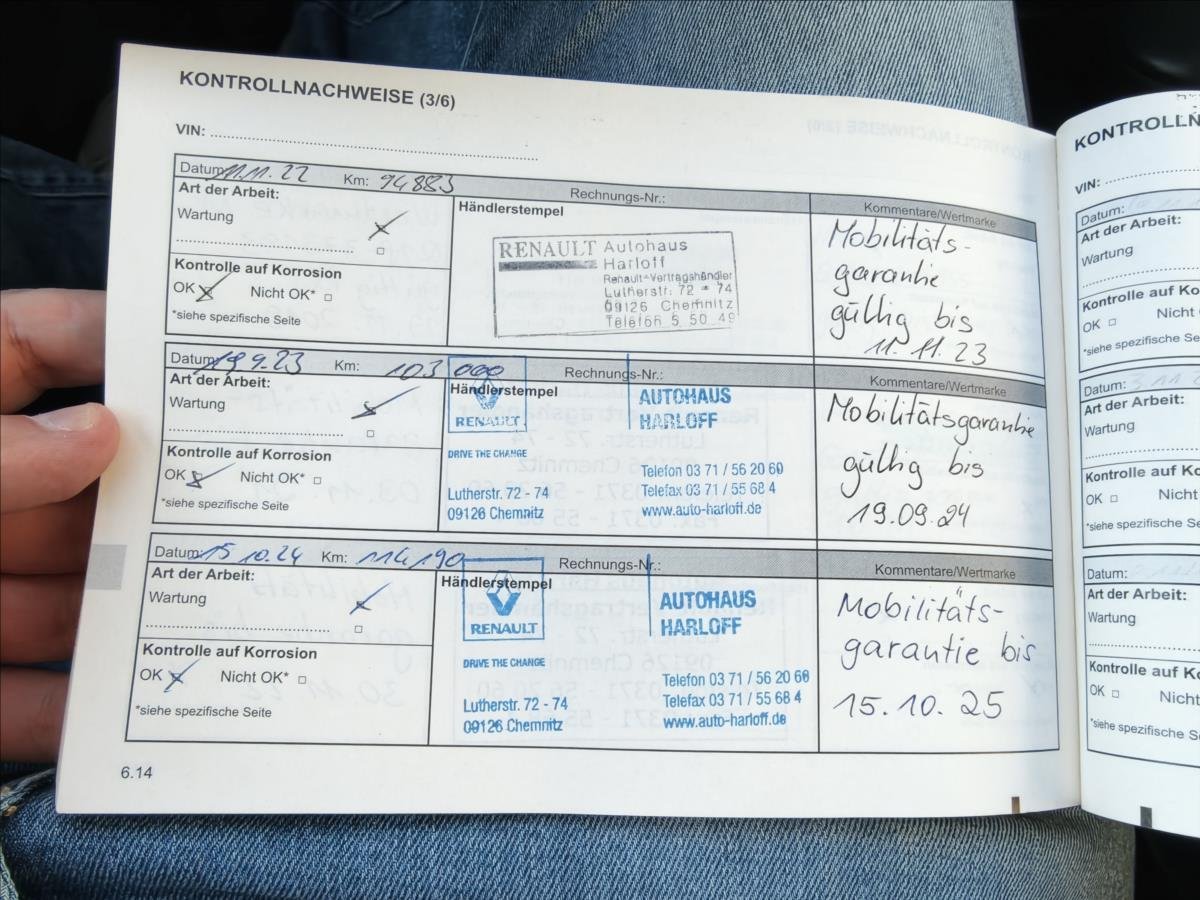 KONTROLLNACHWEISE (3/6)
VIN:
Datum: 11.11.22 Km: 94883 Rechnungs-Nr.: Kommentare/Wertmarke
Art der Arbeit:
Wartung
Kontrolle auf Korrosion
OK Nicht OK*
*siehe spezifische Seite
Händlerstempel
RENAULT Autohaus
Harloff
Renault-Vertragshändler
Lutherstr. 72 - 74
09126 Chemnitz
Telefon 5 50 49
Mobilitäts-
garantie
gültig bis
11.11.23
Datum: 19.9.23 Km: 103 000 Rechnungs-Nr.: Kommentare/Wertmarke
Art der Arbeit:
Wartung
Kontrolle auf Korrosion
OK Nicht OK*
*siehe spezifische Seite
Händlerstempel
RENAULT
DRIVE THE CHANGE
Lutherstr. 72 - 74
09126 Chemnitz
AUTOHAUS
HARLOFF
Telefon 03 71 / 56 20 60
Telefax 03 71 / 55 68 4
www.auto-harloff.de
Mobilitätsgarantie
gültig bis
19.09.24
Datum: 15.10.24 Km: 114 190 Rechnungs-Nr.: Kommentare/Wertmarke
Art der Arbeit:
Wartung
Kontrolle auf Korrosion
OK Nicht OK*
*siehe spezifische Seite
Händlerstempel
RENAULT
DRIVE THE CHANGE
Lutherstr. 72 - 74
09126 Chemnitz
AUTOHAUS
HARLOFF
Telefon 03 71 / 56 20 60
Telefax 03 71 / 55 68 4
www.auto-harloff.de
Mobilitäts-
garantie bis
15.10.25
6.14
KONTROLLN
VIN:
Datum:
Art der Arbeit:
Wartung
Kontrolle auf Ko
OK Nicht
*siehe spezifische Se
Datum:
Art der Arbeit:
Wartung
Kontrolle auf Ko
OK Nicht
*siehe spezifische S
Datum:
Art der Arbeit:
Wartung
Kontrolle auf Ko
OK Nicht
*siehe spezifische S